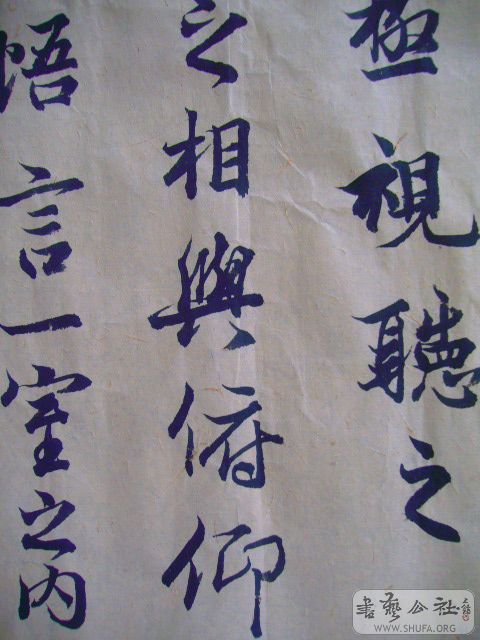 極視聽之
之相與俯仰
悟言一室之内
書藝公社
WWW.SHUFA.ORG